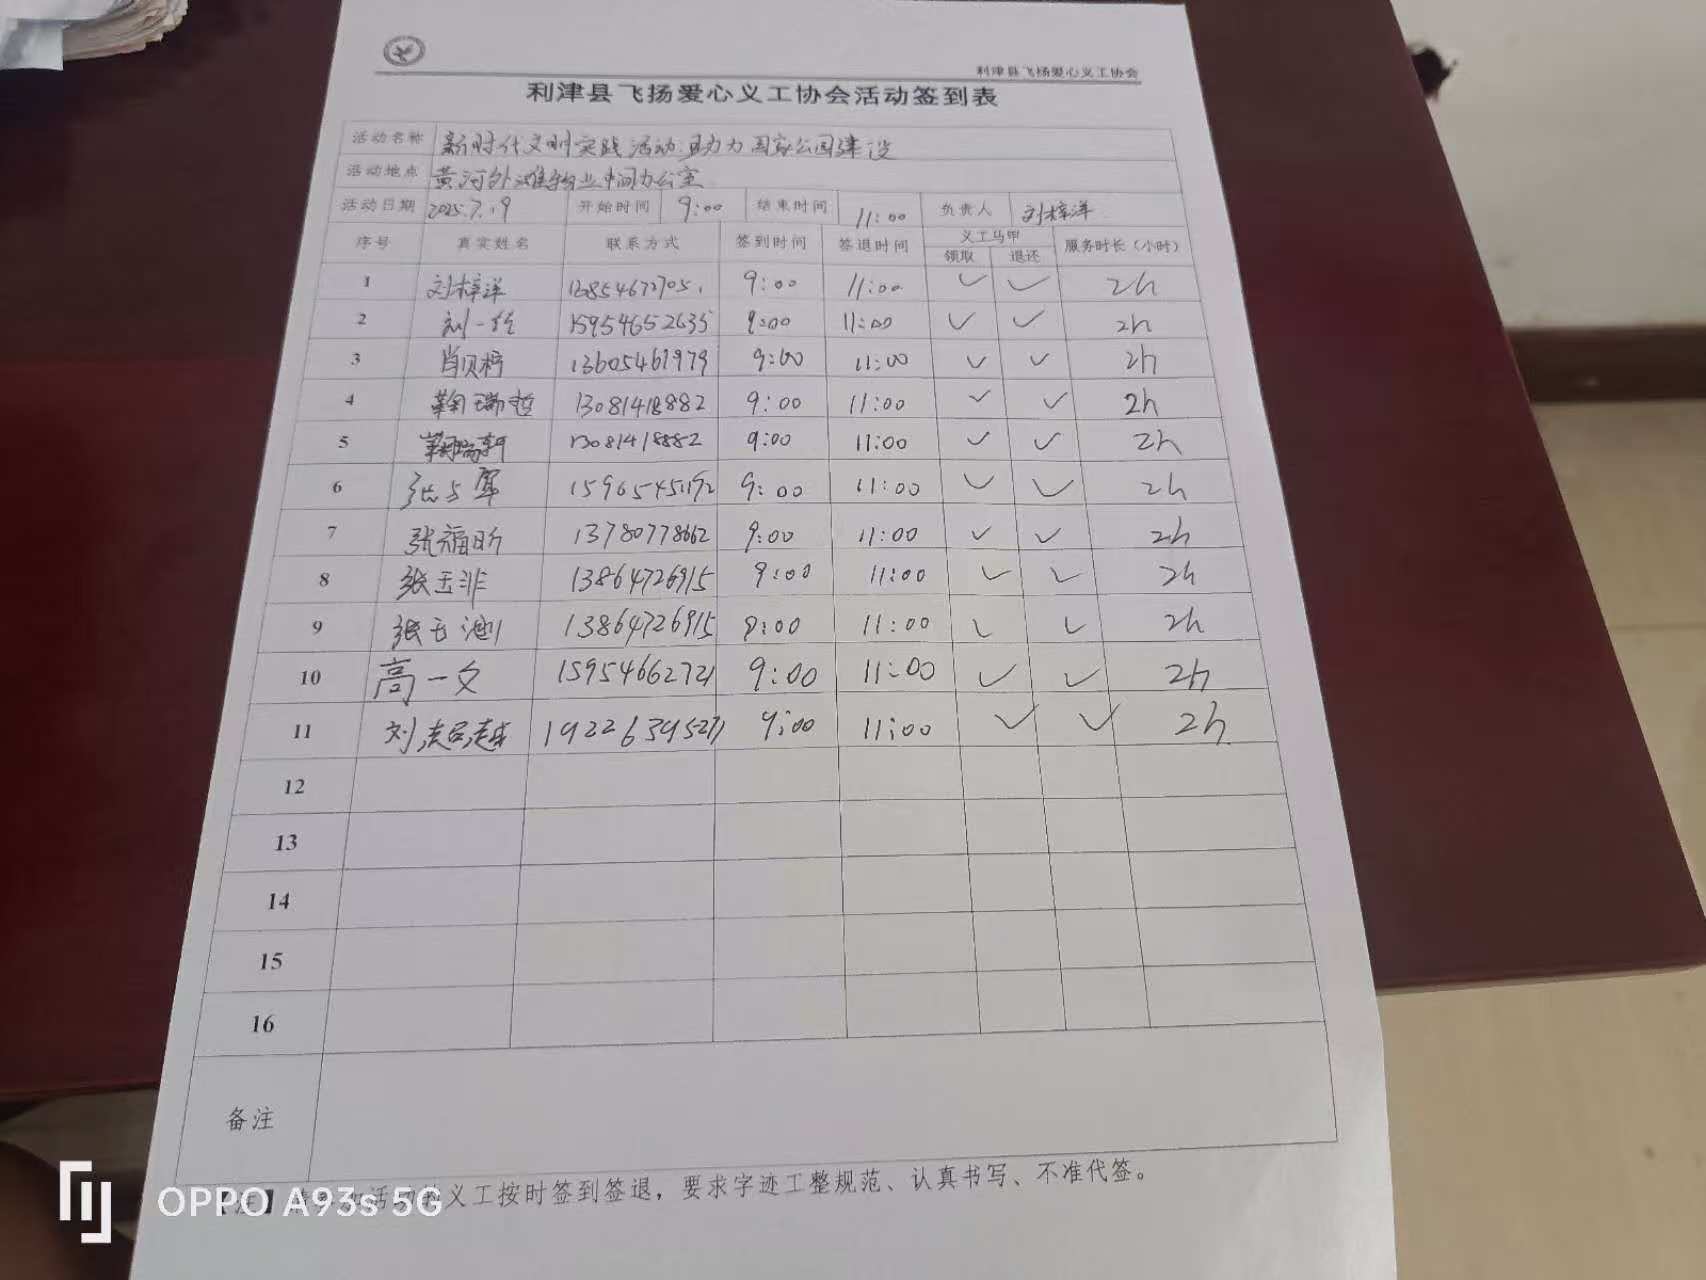 利津县飞扬爱心义工协会
利津县飞扬爱心义工协会活动签到表
活动名称 新时代文明实践活动.助力国家公园建设
活动地点 黄河外滩物业中间办公室
活动日期 2025.7.19 开始时间 9:00 结束时间 11:00 负责人 刘梓洋
序号 真实姓名 联系方式 签到时间 签退时间 义工马甲 领取 退还 服务时长（小时）
1 刘梓洋 9:00 11:00 ✓ ✓ 2h
2 刘一 15954652635 9:00 11:00 ✓ ✓ 2h
3 肖贝梓 13605461979 9:00 11:00 ✓ ✓ 2h
4 鞠瑞哲 13081418882 9:00 11:00 ✓ ✓ 2h
5 鞠瑞轩 13081418882 9:00 11:00 ✓ ✓ 2h
6 张 9:00 11:00 ✓ ✓ 2h
7 张福昕 13780778662 9:00 11:00 ✓ ✓ 2h
8 张玉非 13864726915 9:00 11:00 ✓ ✓ 2h
9 张玉 13864726915 9:00 11:00 ✓ ✓ 2h
10 高一文 15954662721 9:00 11:00 ✓ ✓ 2h
11 刘 越 19226395271 9:00 11:00 ✓ ✓ 2h
12
13
14
15
16
备注
义工按时签到签退，要求字迹工整规范、认真书写、不准代签。
OPPO A93s 5G